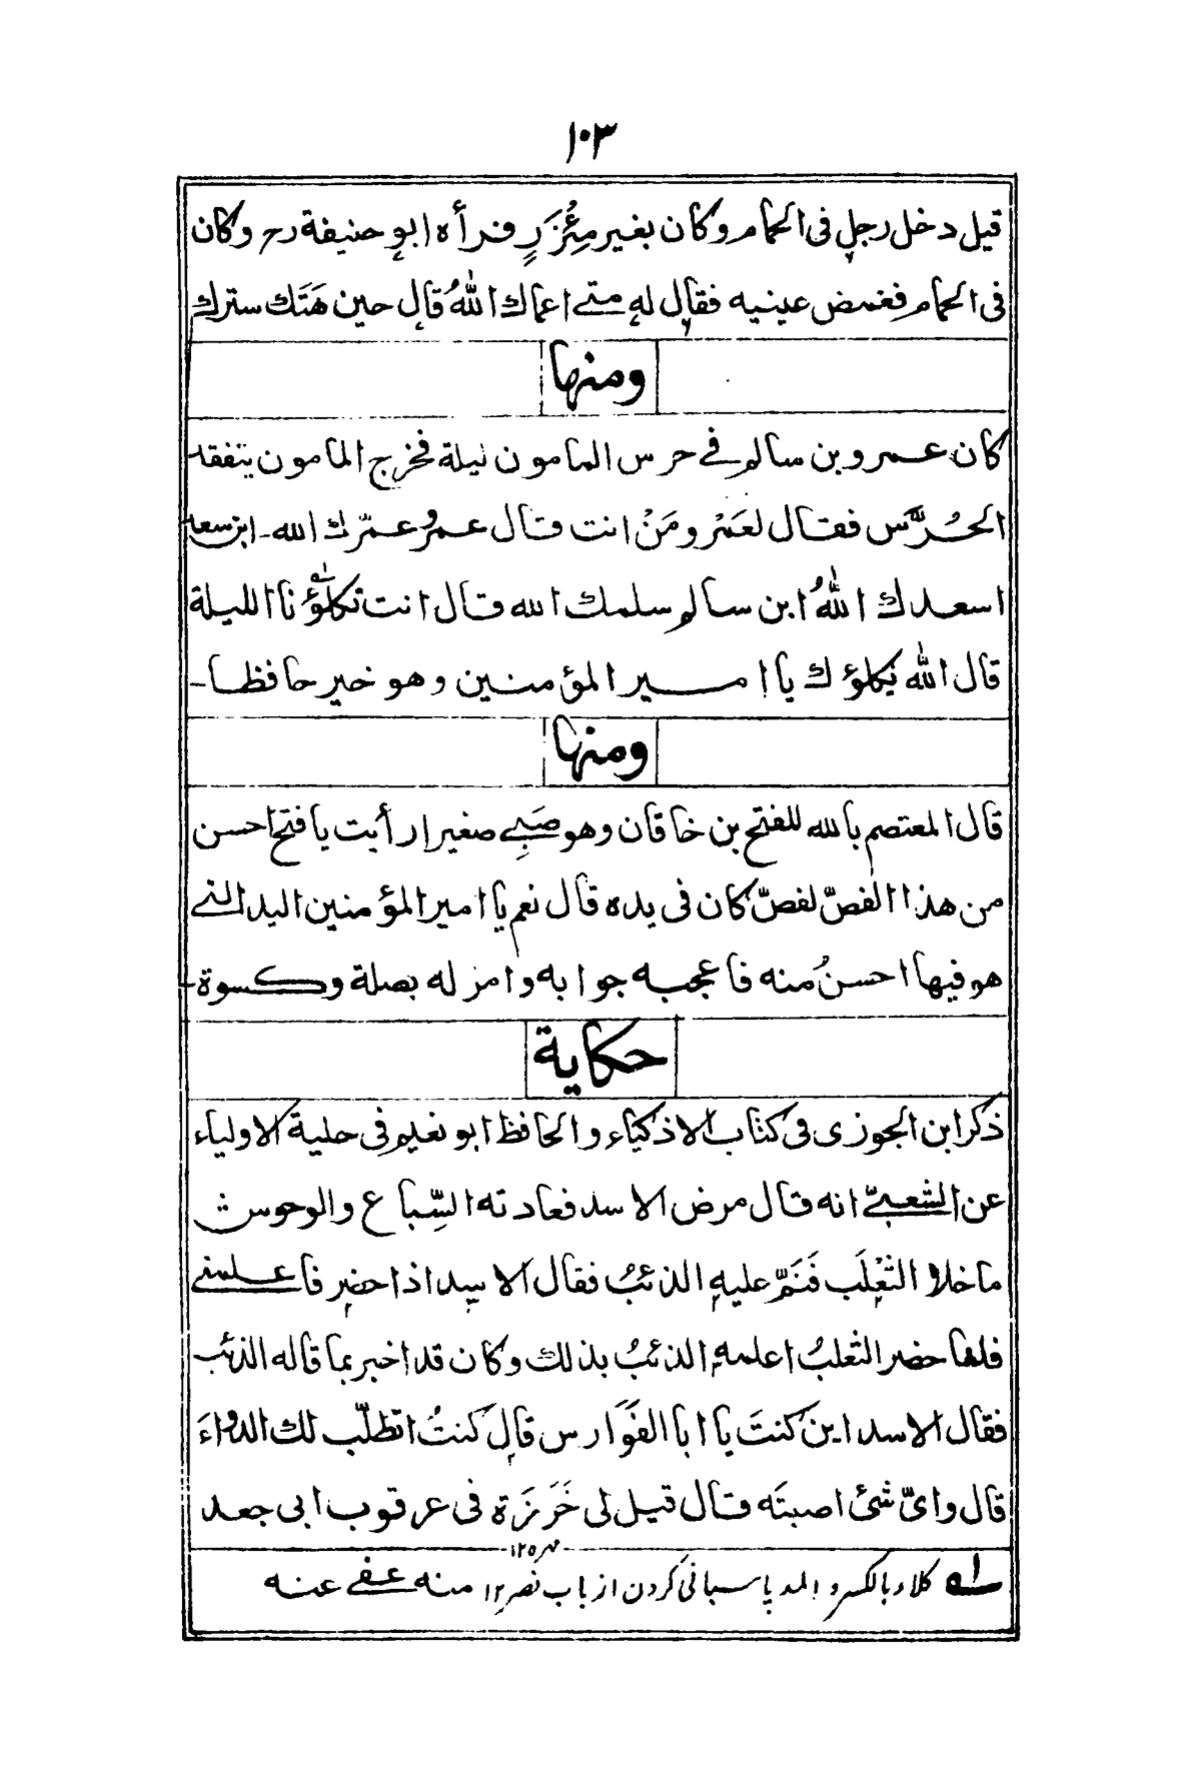 ١٠٣
قيل دخل رجل فى الحمام وكان بغير مِئْزَرٍ فرأه ابو حنيفة رح وكان
فى الحمام فغمض عينيه فقال له متے اعماك اللهُ قال حين هَتَك سترك
ومنها
كان عمرو بن سالم فے حرس المامون ليلة فخرج المامون يتفقد
الحُرَّس فقال لعَمْرو مَنْ انت قال عمرو عمّرك الله ـ ابن سعد
اسعدك اللهُ ابن سالم سلمك الله قال انت تكلؤنا الليلة
قال الله يكلؤك يا امير المؤمنين وهو خير حافظا ـ
ومنها
قال المعتصم بالله للفتح بن خاقان وهو صَبِے صغير ارأيت يا فتح احسن
من هذا الفصّ لفصّ كان فى يده قال نعم يا امير المؤمنين اليد التے
هو فيها احسنُ منه فاعجبه جوابه وامر له بصلة وكسوة ـ
حكاية
ذكر ابن الجوزى فى كتاب الاذكياء والحافظ ابو نعيم فى حلية الاولياء
عن الشعبےّ انه قال مرض الاسد فعادته السِّباع والوحوش
ما خلا الثَعْلَب فَنَمّ عليه الذئبُ فقال الاسد اذا حضر فاعلمنے
فلما حضر الثعلبُ اعلمه الذئبُ بذلك وكان قد اخبر بما قاله الذئب
فقال الاسد اين كنتَ يا ابا الفَوَارس قال كنتُ اتطلّب لك الدواءَ
قال واىّ شئ اصبتَه قال قيل لى خَرَزَة فى عرقوب ابى جعد
لـه كلاء بالكسر و المد پاسبانى كردن از باب نصر ١٢ منه عفے عنه